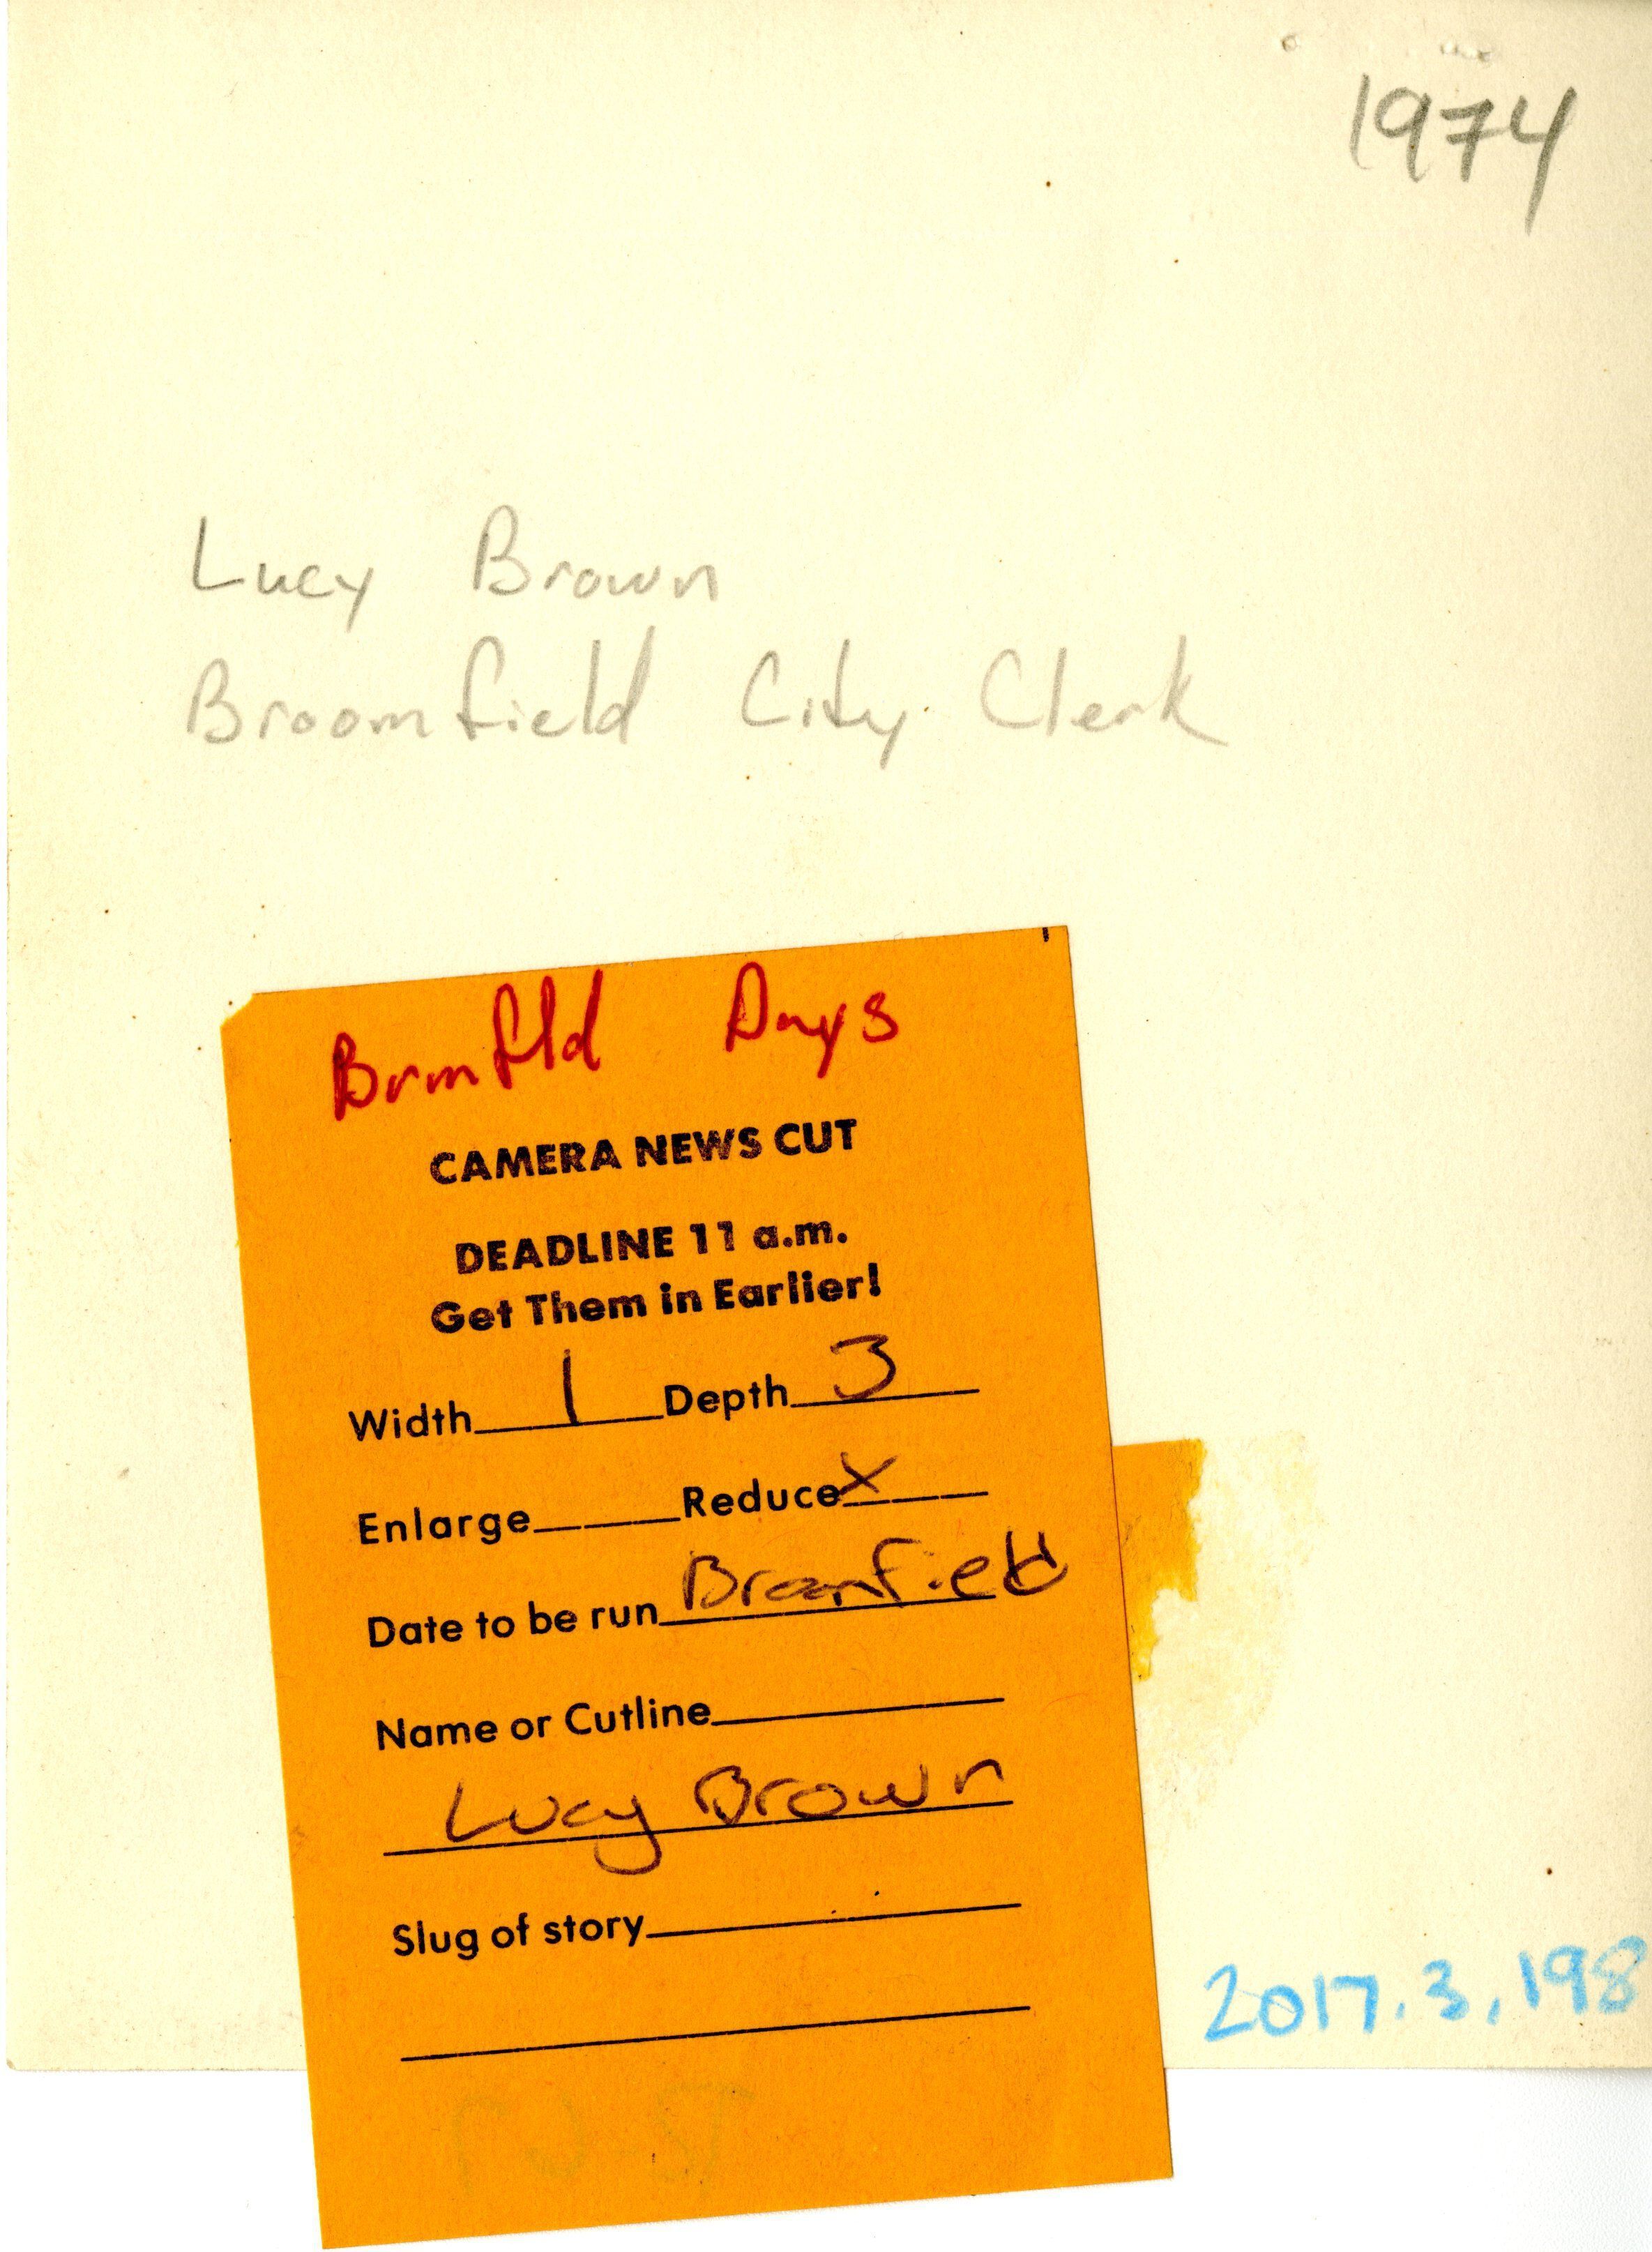 1974
Lucy Brown
Broomfield City Clerk
Brmfld Days
CAMERA NEWS CUT
DEADLINE 11 a.m.
Get Them in Earlier!
Width 1 Depth 3
Enlarge Reduce X
Date to be run Broomfield
Name or Cutline
Lucy Brown
Slug of story
2017.3.198